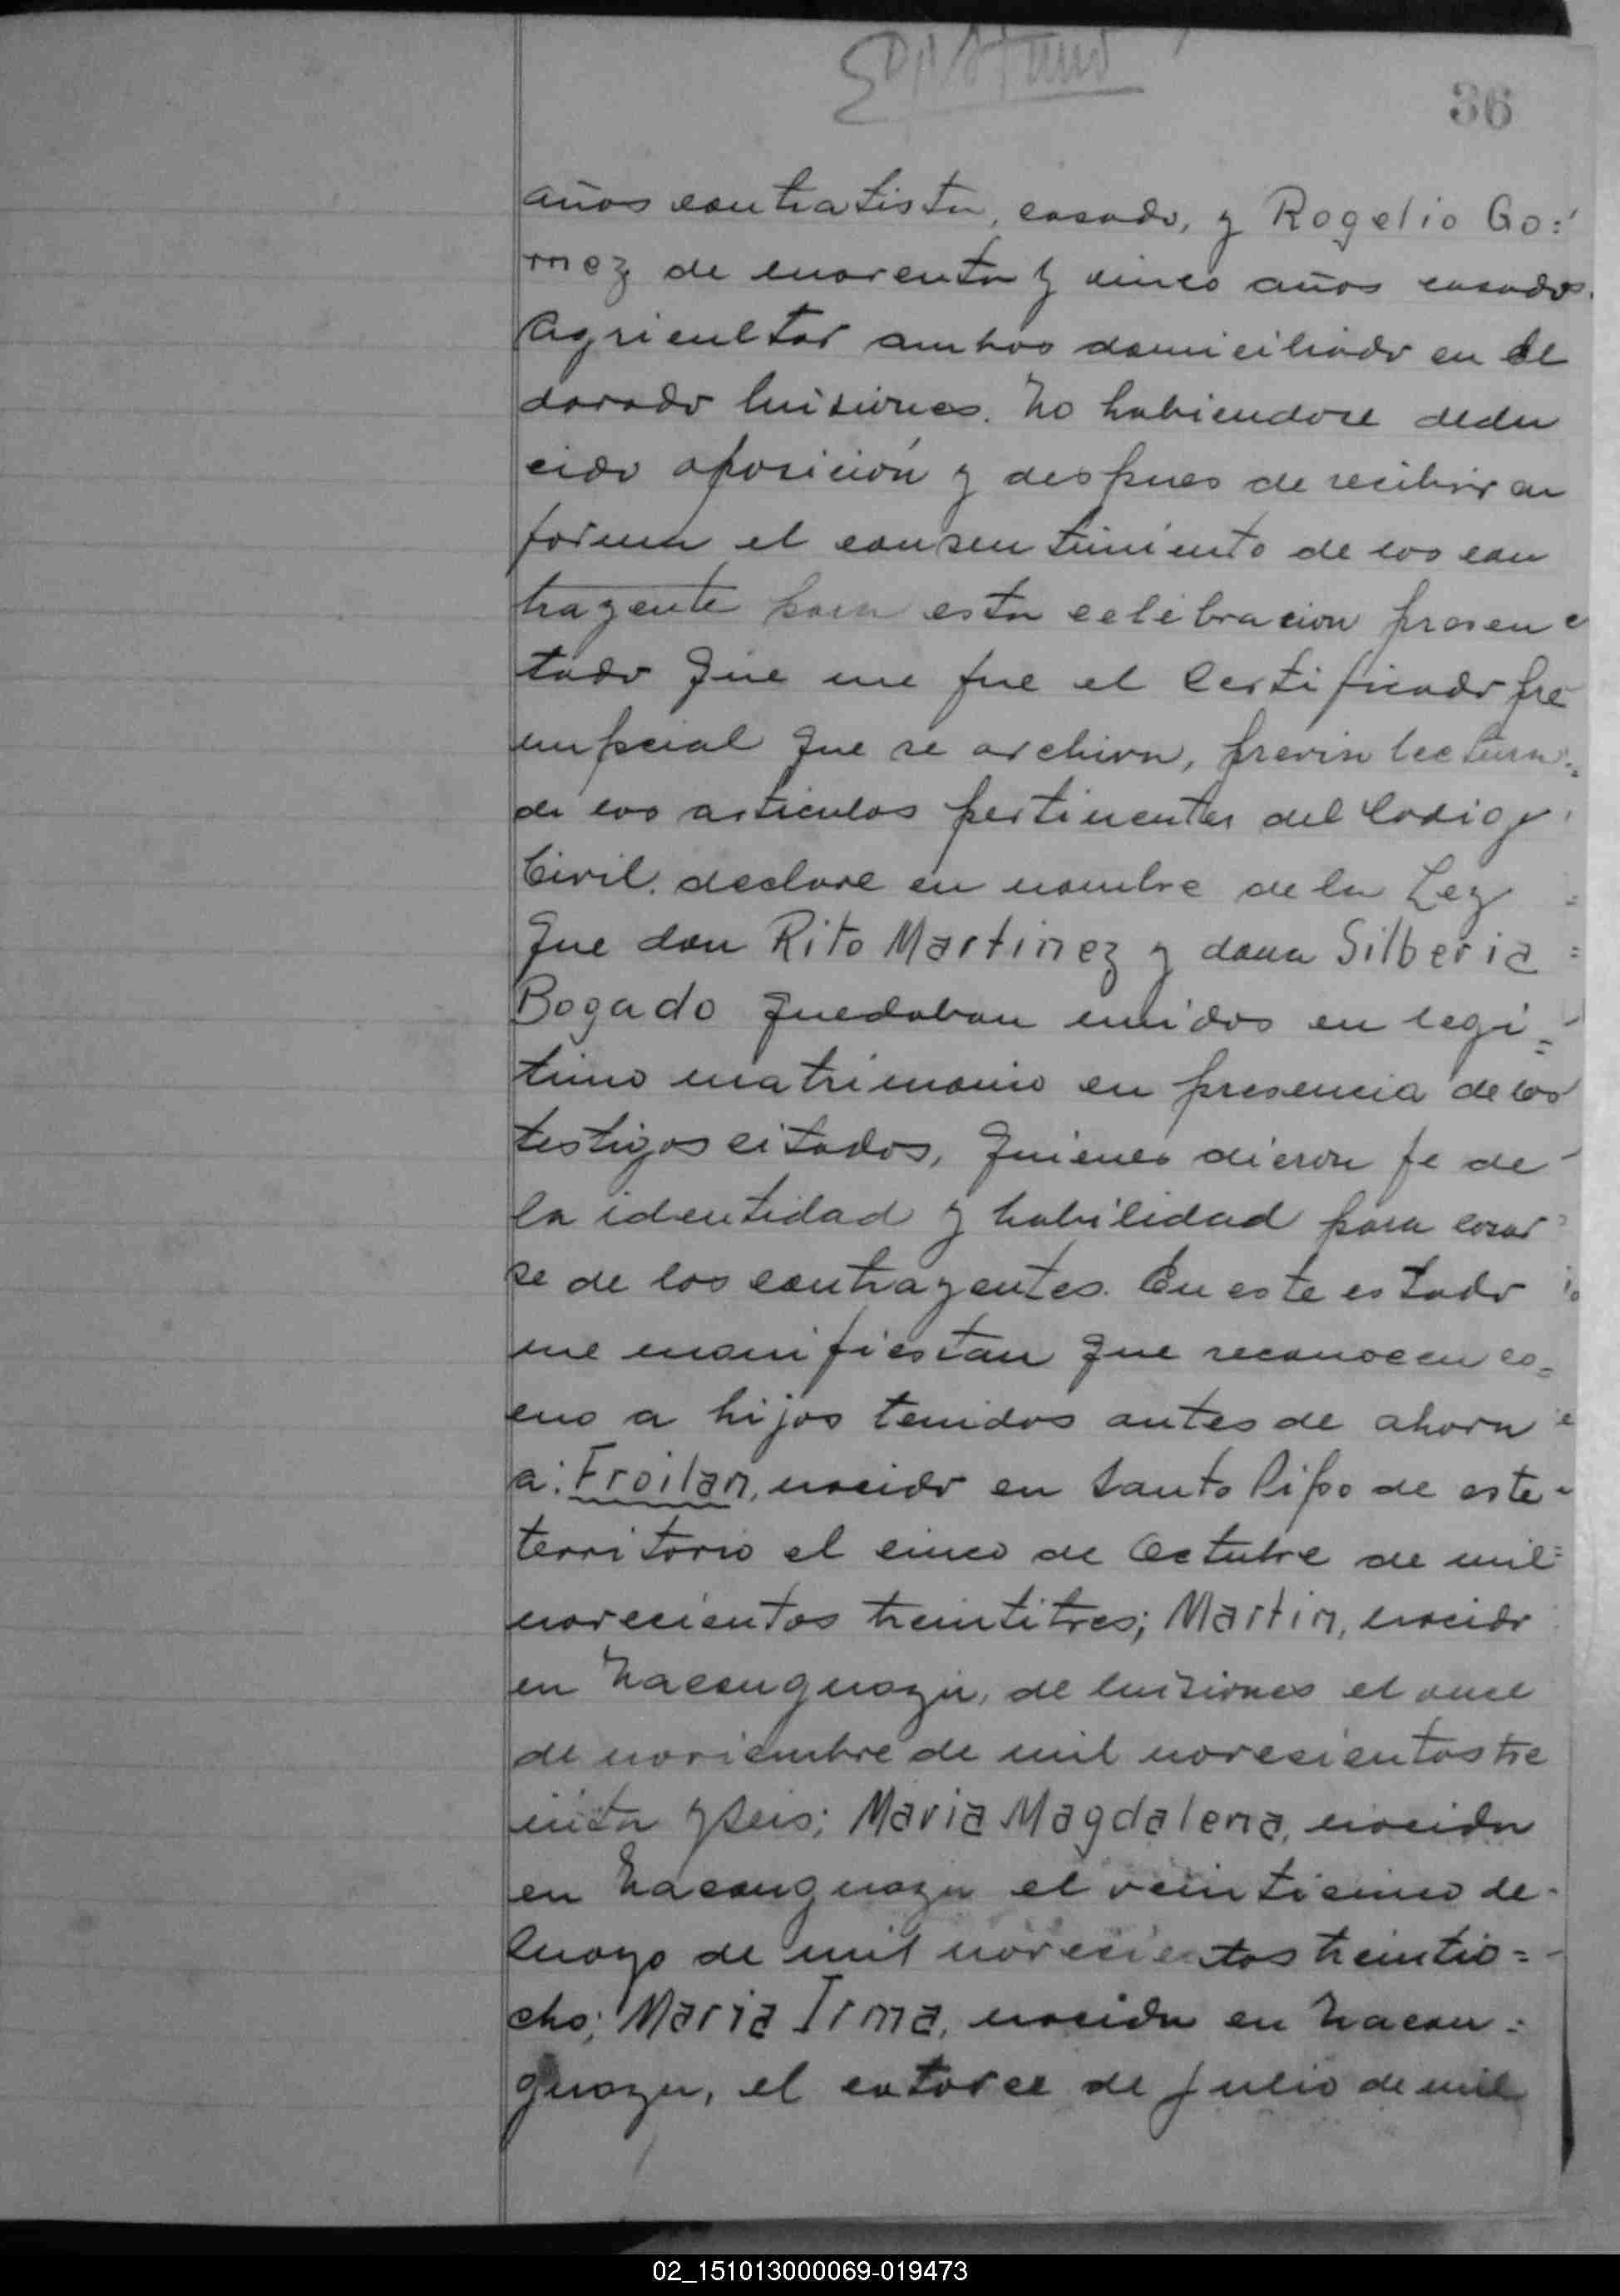 36
años contratista, casado, y Rogelio Go=
mez de cuarenta y cinco años casado.
Agricultor ambos domiciliado en El
dorado Misiones. No habiendose dedu
cido oposición y despues de recibir en
forma el consentimiento de los con
trayente para esta celebracion presen
tado que me fue el Certificado pre
nupcial que se archiva, previa lectura=
de los articulos pertinentes del Codigo
Civil, declare en nombre de la Ley =
que don Rito Martinez y dona Silberia =
Bogado quedaban unidos en legi=
timo matrimonio en presencia de los
testigos citados, quienes dieron fe de
la identidad y habilidad para casar
se de los contrayentes. En este estado
me manifiestan que reconocen co=
mo a hijos tenidos antes de ahora
a: Froilan, nacido en Santo Pipo de este
territorio el cinco de Octubre de mil=
novecientos treintitres; Martin, nacido
en Ñacanguazu, de Misiones el once
de noviembre de mil novecientos tre
inta y seis; Maria Magdalena, nacida
en Ñacanguazu el veinticinco de
Mayo de mil novecientos treintio=
cho; Maria Irma, nacida en Ñacan=
guazu, el catorce de Julio de mil
02_151013000069-019473